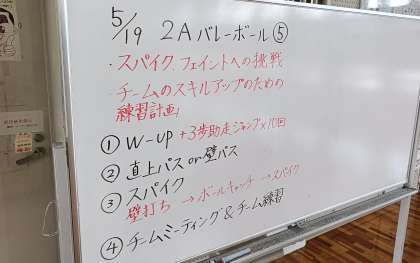 5/19 2Aバレーボール⑤
・スパイク、フェイントへの挑戦
・チームのスキルアップのための
練習計画」
① W-up +3歩助走ジャンプ×10回
② 直上パス or 壁パス
③ スパイク
壁打ち → ボールキャッチ → スパイク
④ チームミーティング & チーム練習